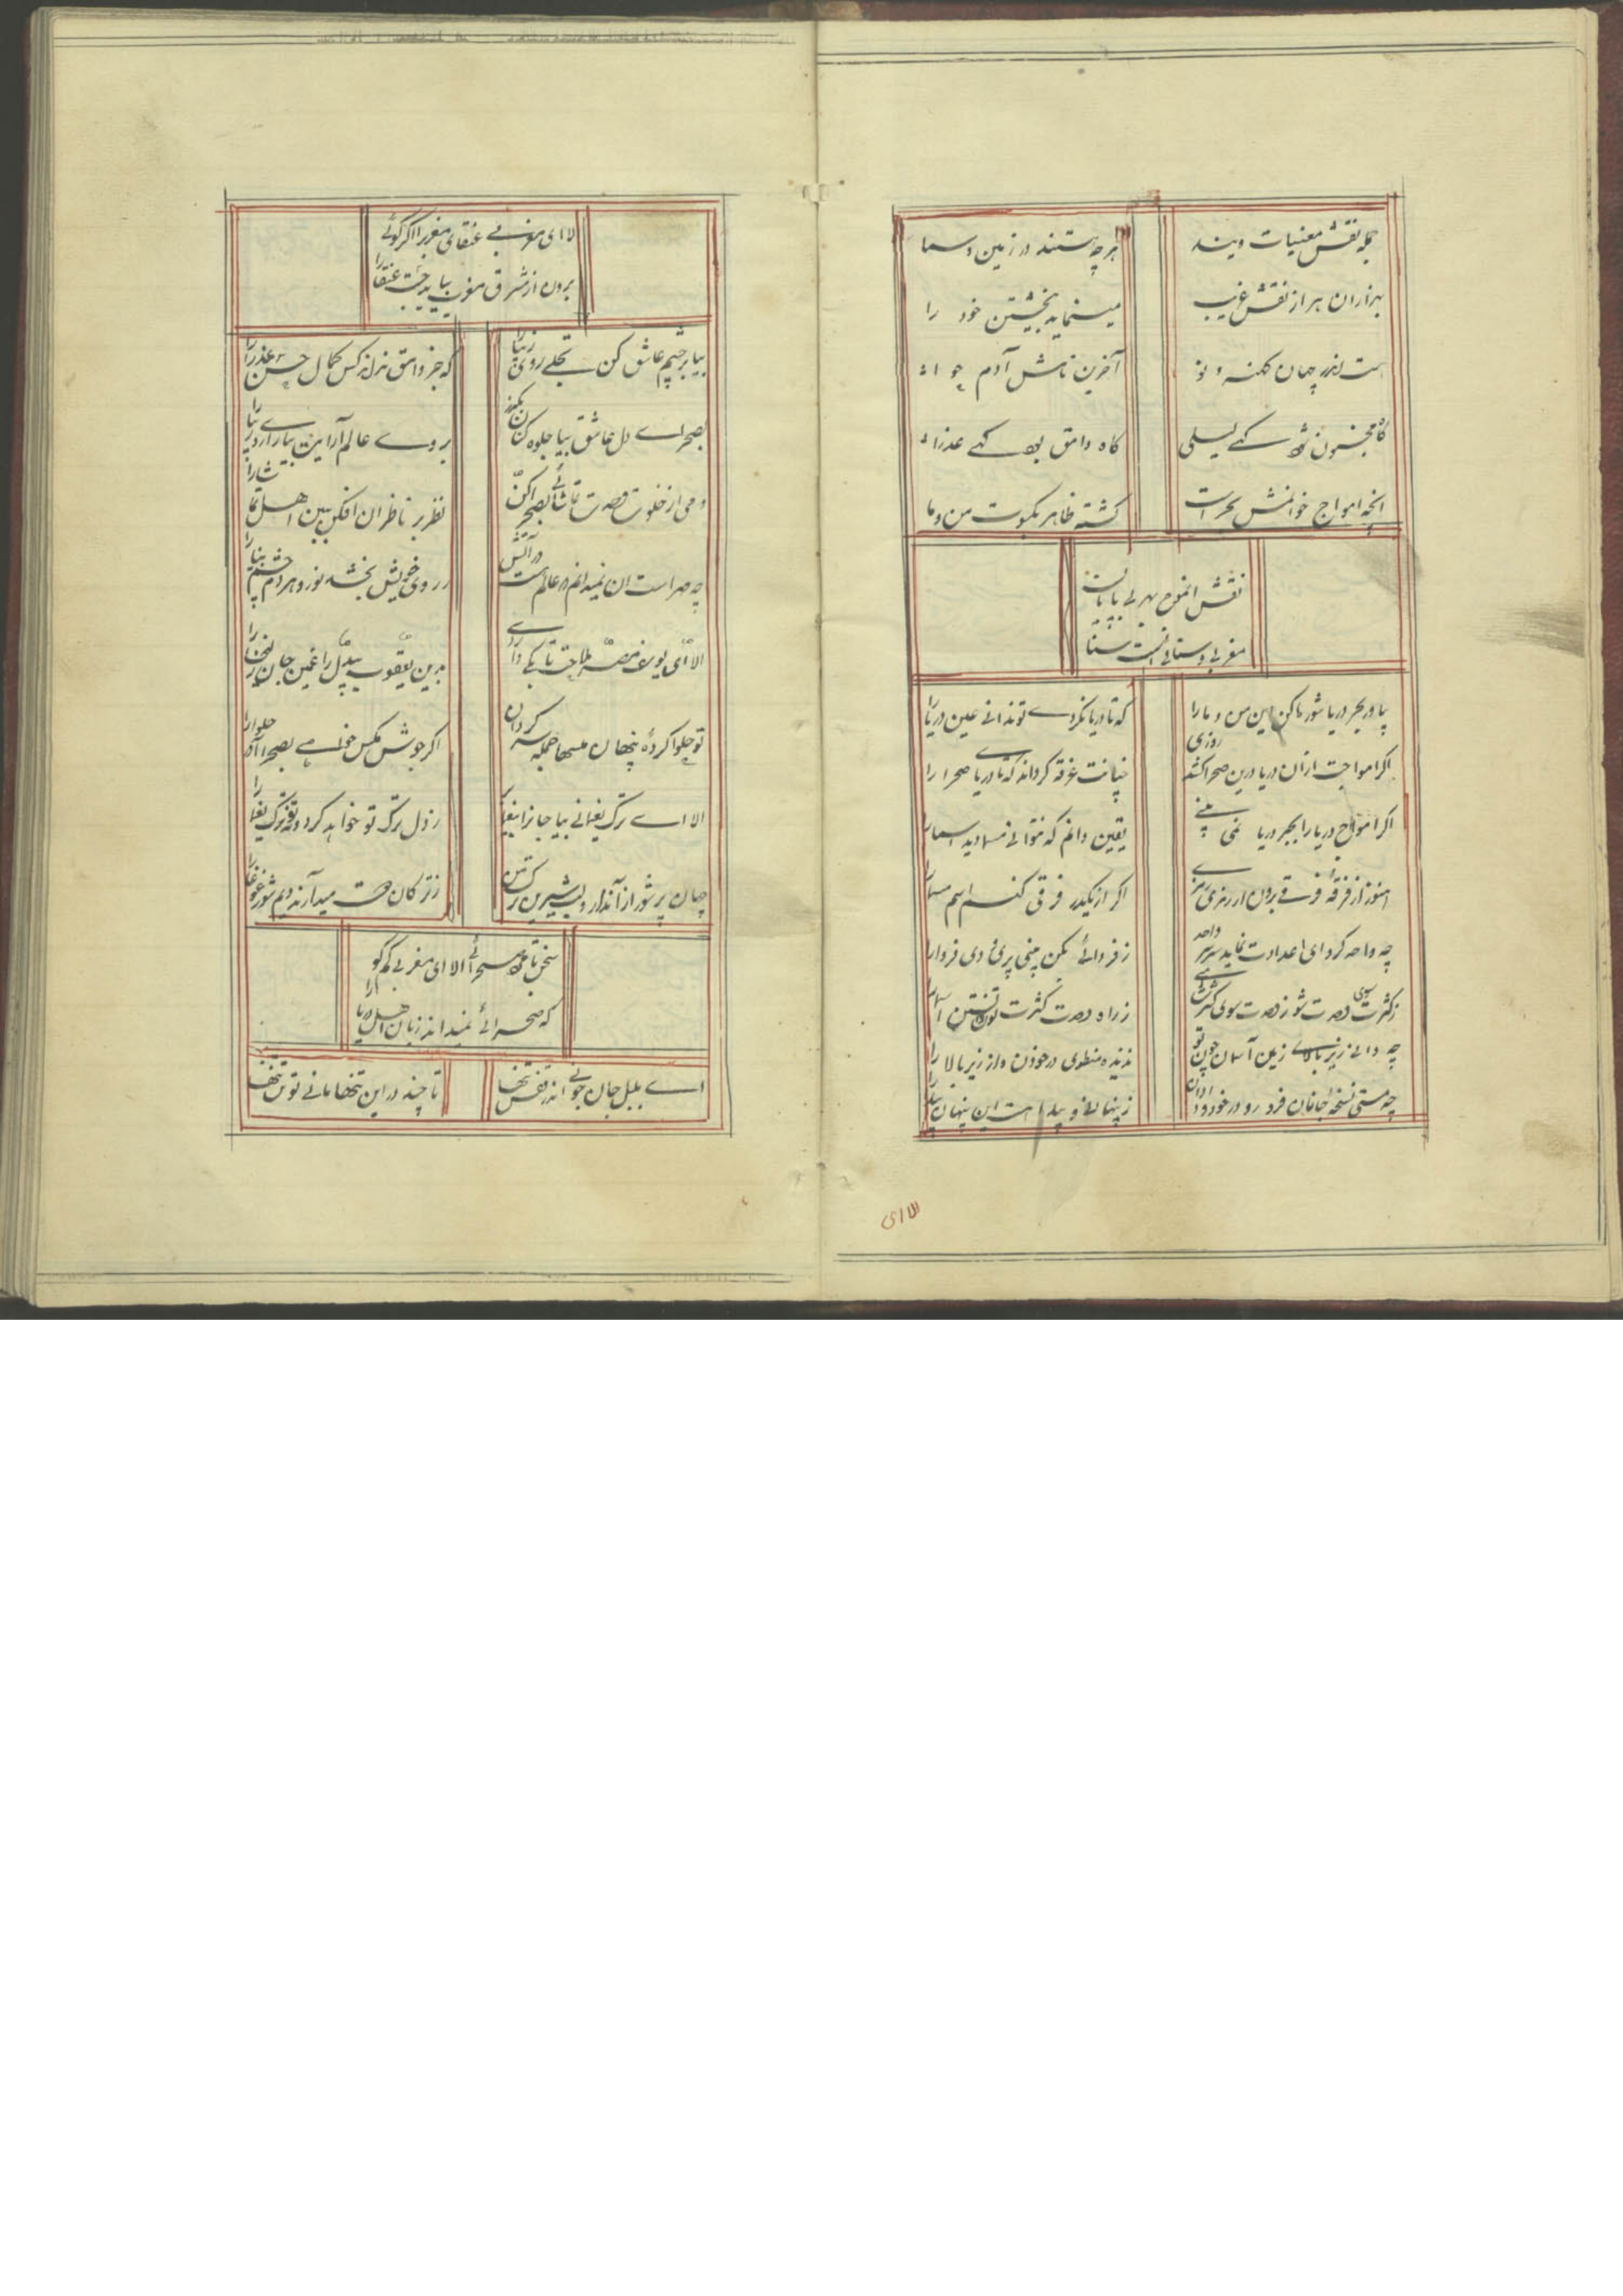 جمله نقش معنیات ویند
هرچه هستند در زمین و سما
بهزاران هزار نقش غریب
مینماید بخویشتن خود را
هست اندر جهان کهنه و نو
آخرین نامش آدم و حوا
گاه مجنون شد گهے لیلی
گاه وامق بود گهے عذرا
آنچه امواج خوانمش بحر است
گشته ظاهر بکسوت من و ما
نقش امواج بحر بی پایان
مغربی و سنائی است سنا
بیا در بحر دریا شو رها کن این من و ما را
که تا دریا نگردے تو ندانے عین دریا را
اگر امواجت از آن دریا درین صحرا کشد روزی
چنانت غرقه گرداند که تا دریا صحرا را
اگر امواج دریا را بجز دریا نمی بینے
یقین دانم که نتوانے مسما دید اسما را
هنوز از فرقه فرقے برون ار رمزی
اگر از یکدگر فرقی کنے اسم مسما را
چه واحد گردای اعدادت نماید سربسر واحد
ز فردائے مکن بینی پری دی فردا را
ز کثرت سوی وحدت شو ز وحدت سوی کثرت
ز راه وحدت کثرت توان دانستن آسمان
چه دانے زیر بالاے زمین آسمان چون تو
ندیده منطوی در خود و از زیر بالا را
چه هستی نسخه جانان فرو رو در خود و
ز پنهانے و پیدا هست این پنهان پیدا را
الا ای
الا ای مغربے عنقای مغرب را اگر گوئے
برون از شرق مغرب بباید جست عنقا را
بیا بر چشم عاشق کن تجلے روی زیبا را
که جز وامق نداند کس کمال حسن عذرا را
بصحراے دل عاشق بیا جلوه کن بگذر
بروے عالم آرایت بیارا روے زیبا را
دمی از خلوت وحدت تماشائے بصحرا کن
نظر بر ناظران افکن ببین اهل تماشا را
چه مهر است آن نمیدانم در عالم هست در آتش
ز روی خویش بخشد نور و هر دم چشم بینا را
الا ای یوسف مصر ملاحت تا بکے دارے
بدین یعقوب بیدل را غمین جان زلیخا را
تو حلوا کرده پنهان مگسها جمله سرگردان
اگر جوش مگس خواهے بصحرا آر حلوا را
الا اے ترک یغمائی بیا جانرا یغما کن
ز دل ترک تو خواهد کرد ترک یغما را
جهان پر شور از آن دارد لب شیرین ترکمن
ز ترکان دوست میدارند دایم شور غوغا را
سخن با صحرائے الا ای مغربے کم گو
که صحرائے نمیداند زبان اهل دریا را
اے بلبل جان چونے اندر قفس تنها
تا چند در این تنها مانے تو تن تنها